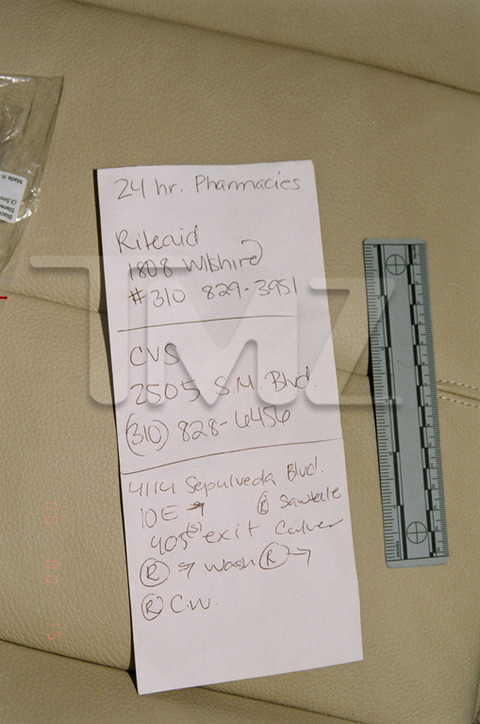 24 hr. Pharmacies
Riteaid
1808 Wilshire
#310 829-3951
CVS
2505 S.M. Blvd.
(310) 828-6456
4114 Sepulveda Blvd.
10E → R Sawtelle
405(S) exit Culver
R → Wash R →
R C.W.
TMZ
Made in